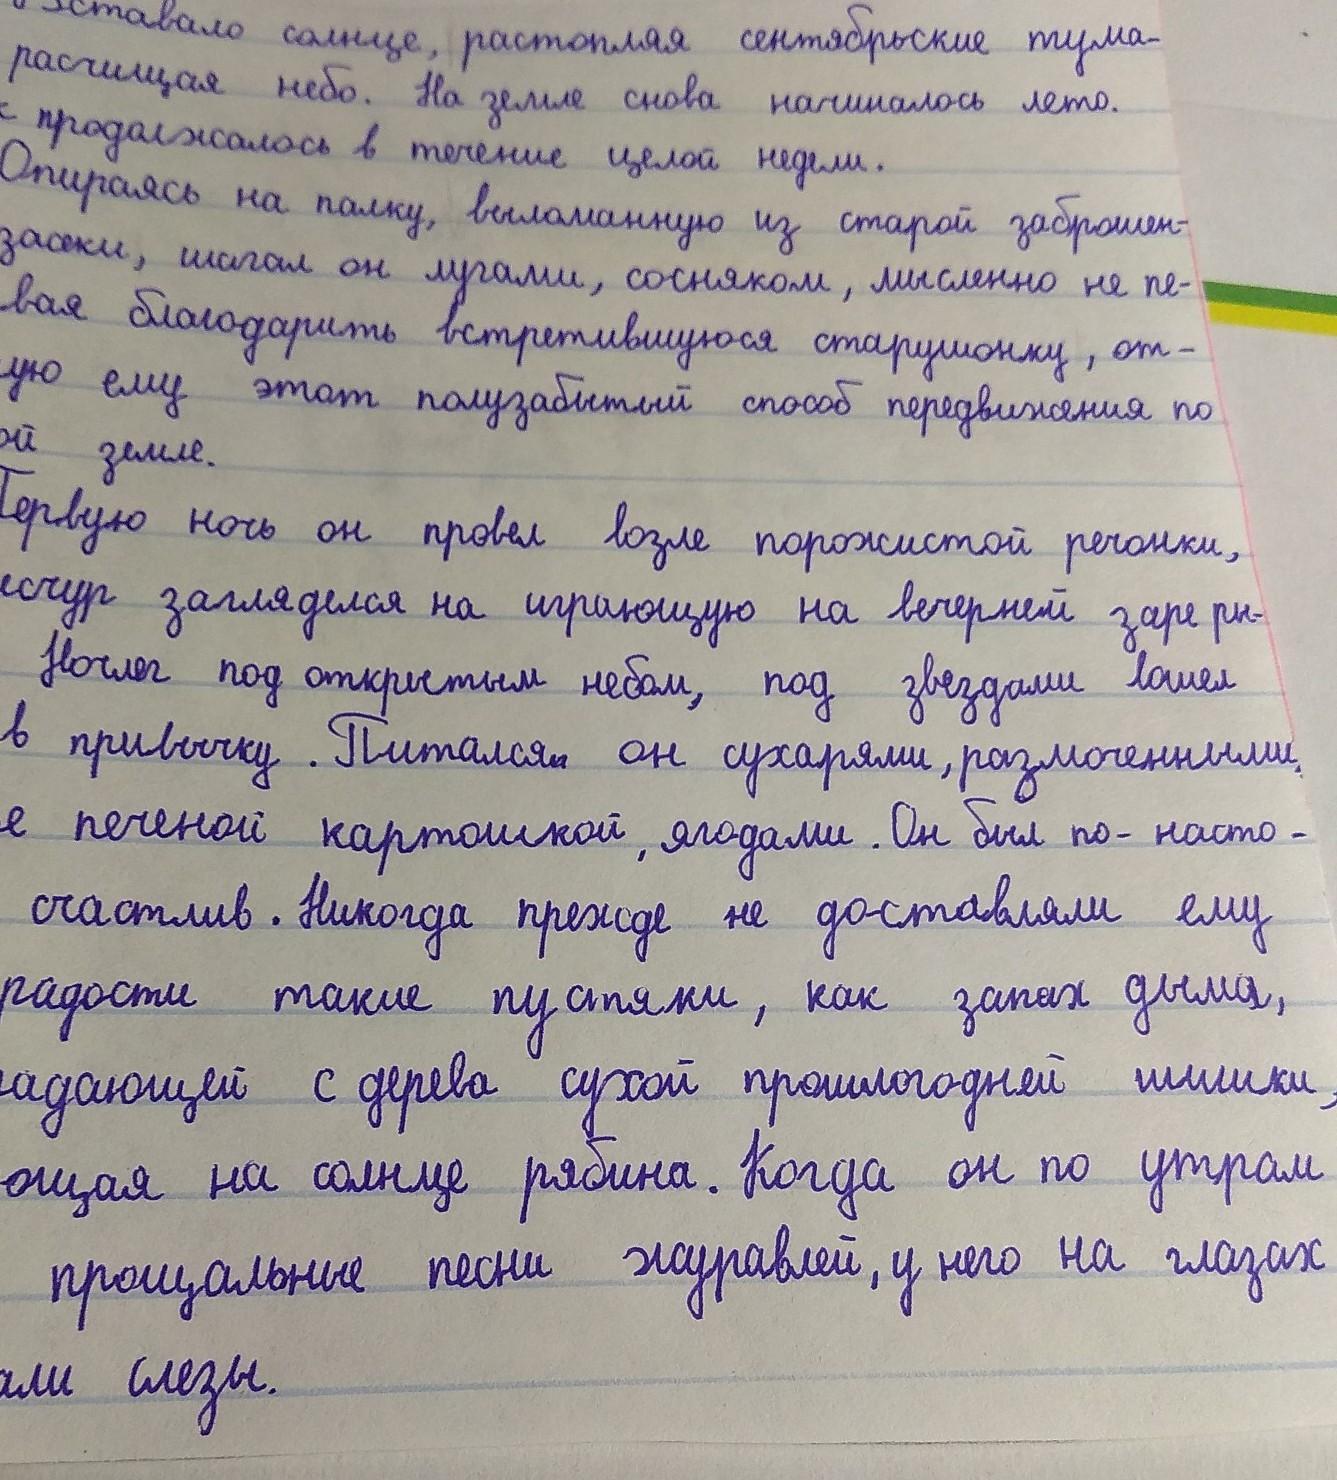 вставало солнце, растопляя сентябрьские тума-
расчищая небо. На земле снова начиналось лето.
к продолжалось в течение целой недели.
Опираясь на палку, выломанную из старой заброшен-
засеки, шагал он лугами, сосняком, мысленно не пе-
вая благодарить встретившуюся старушонку, от-
ую ему этот полузабытый способ передвижения по
ой земле.
Первую ночь он провел возле порожистой речонки,
исчур загляделся на играющую на вечерней заре ры-
Ночлег под открытым небом, под звездами вошел
в привычку. Питался он сухарями, размоченными
е печеной картошкой, ягодами. Он был по-насто-
счастлив. Никогда прежде не доставляли ему
радости такие пустяки, как запах дыма,
адающей с дерева сухой прошлогодней шишки,
ющая на солнце рябина. Когда он по утрам
прощальные песни журавлей, у него на глазах
али слезы.